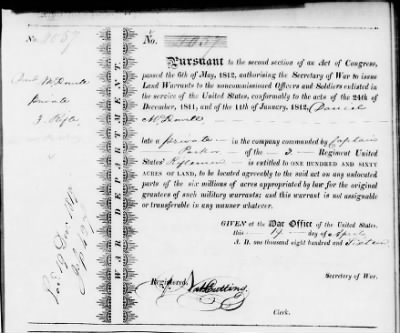 No. 1057
Private
3 Rifle
WAR DEPARTMENT.
No. 1057
Pursuant to the second section of an Act of Congress,
passed the 6th of May, 1812, authorising the Secretary of War to issue
Land Warrants to the noncommissioned Officers and Soldiers enlisted in
the service of the United States, conformably to the acts of the 24th of
December, 1811, and of the 11th of January, 1812, Daniel
late a private in the company commanded by Captain
of the 3 Regiment United
States' Riflemen is entitled to ONE HUNDRED AND SIXTY
ACRES OF LAND, to be located agreeably to the said act on any unlocated
parts of the six millions of acres appropriated by law for the original
grantees of such military warrants; and this warrant is not assignable
or transferable in any manner whatever.
GIVEN at the War Office of the United States.
this day of April
A. D. one thousand eight hundred and Sixteen
Secretary of War.
Registered,
Clerk.